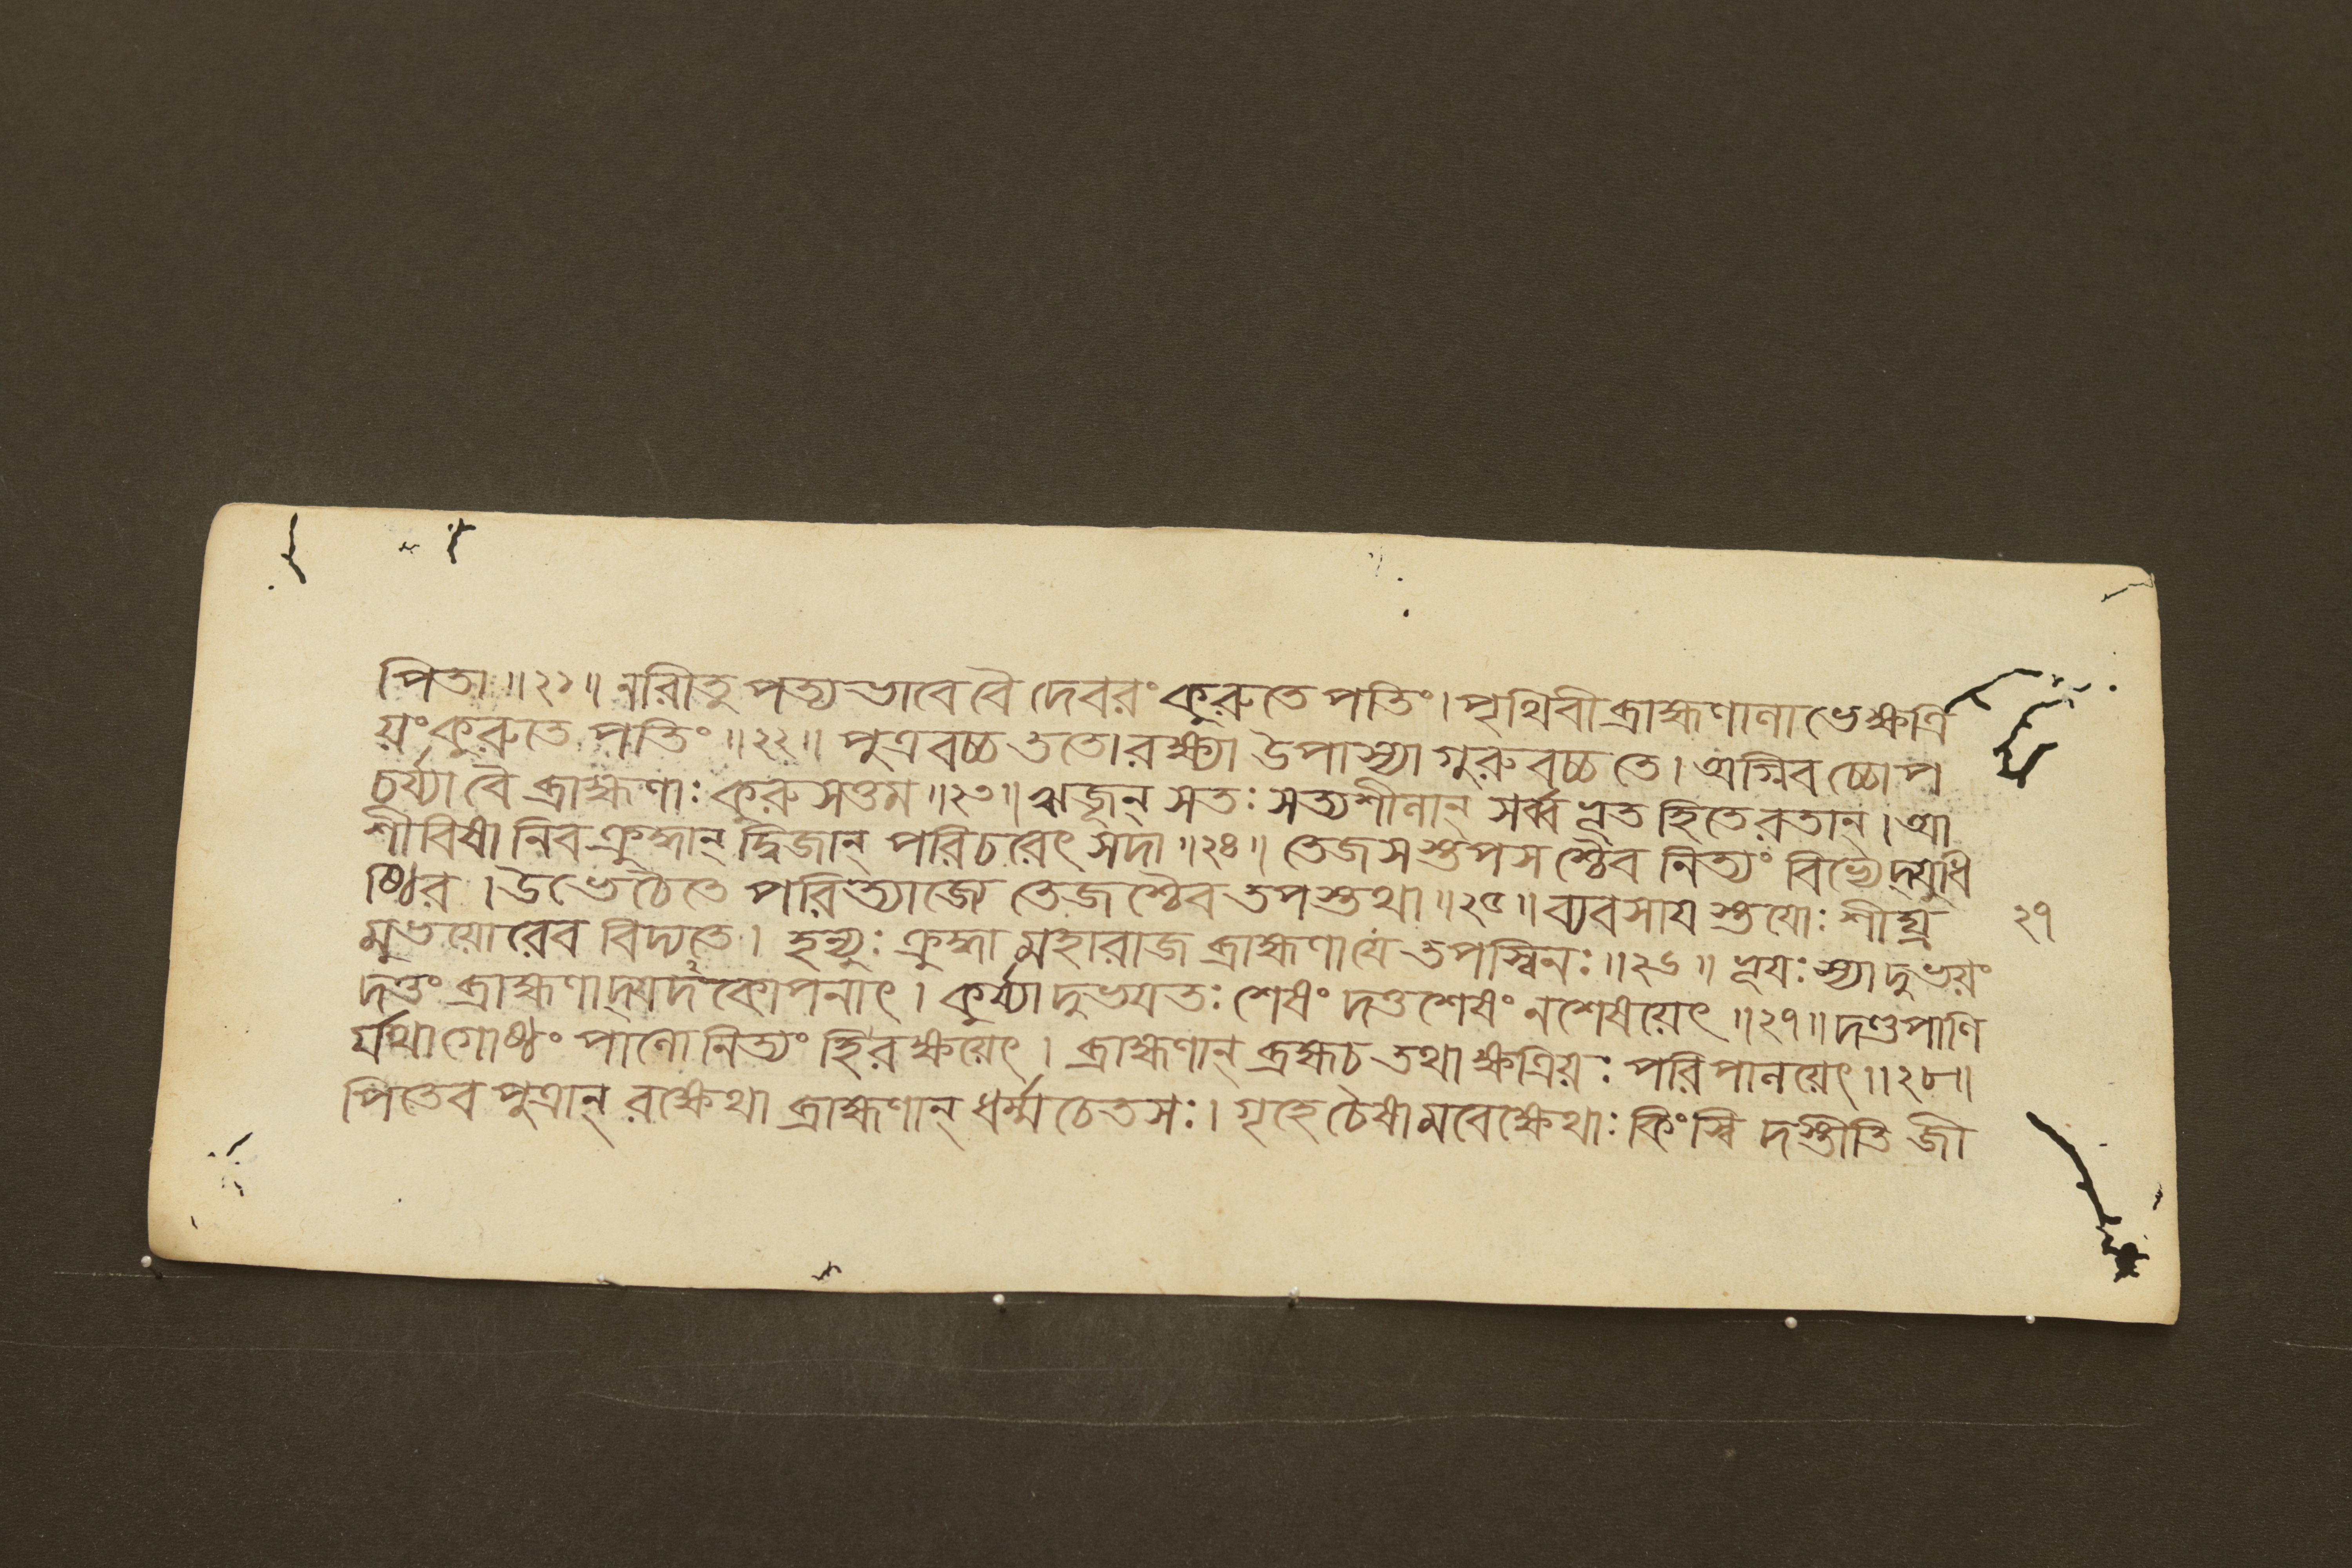 পিতা ॥২১॥ নারীতু পত্যভাবে বৈ দেবরং কুরুতে পতিং। পৃথিবী ব্রাহ্মণালাভে ক্ষত্রি
য়ং কুরুতে পতিং ॥২২॥ পুত্রবচ্চ ততো রক্ষ্যা উপাস্যা গুরুবচ্চ তে। অগ্নিবচ্চোপ
চর্য্যা বৈ ব্রাহ্মণাঃ কুরুসত্তম ॥২৩॥ ঋজূন্ সতঃ সত্যশীলান্ সর্ব্বভূতহিতে রতান্। আ
শীবিষানিব ক্রুদ্ধান্ দ্বিজান্ পরিচরেৎ সদা ॥২৪॥ তেজসস্তপসশ্চৈব নিত্যং বিভ্যেদ্যুধি
ষ্ঠির। উভে চৈতে পরিত্যাজ্যে তেজশ্চৈব তপস্তথা ॥২৫॥ ব্যবসায়স্তয়োঃ শীঘ্র
মুভয়োরেব বিদ্যতে। হন্যুঃ ক্রুদ্ধা মহারাজ ব্রাহ্মণা যে তপস্বিনঃ ॥২৬॥ ভূয়ঃ স্যাদুভয়ং
দত্তং ব্রাহ্মণাদ্যদকোপনাৎ। কুর্য্যাদুভয়তঃ শেষং দত্তশেষং ন শেষয়েৎ ॥২৭॥ দণ্ডপাণি
র্যথা গোষ্ঠং পালো নিত্যং হি রক্ষয়েৎ। ব্রাহ্মণান্ ব্রহ্ম চ তথা ক্ষত্রিয়ঃ পরিপালয়েৎ ॥২৮॥
পিতেব পুত্রান্ রক্ষেথা ব্রাহ্মণান্ ধর্ম্মচেতসঃ। গৃহে চৈষামবেক্ষেথাঃ কিংস্বিদস্তীতি জী
২৭